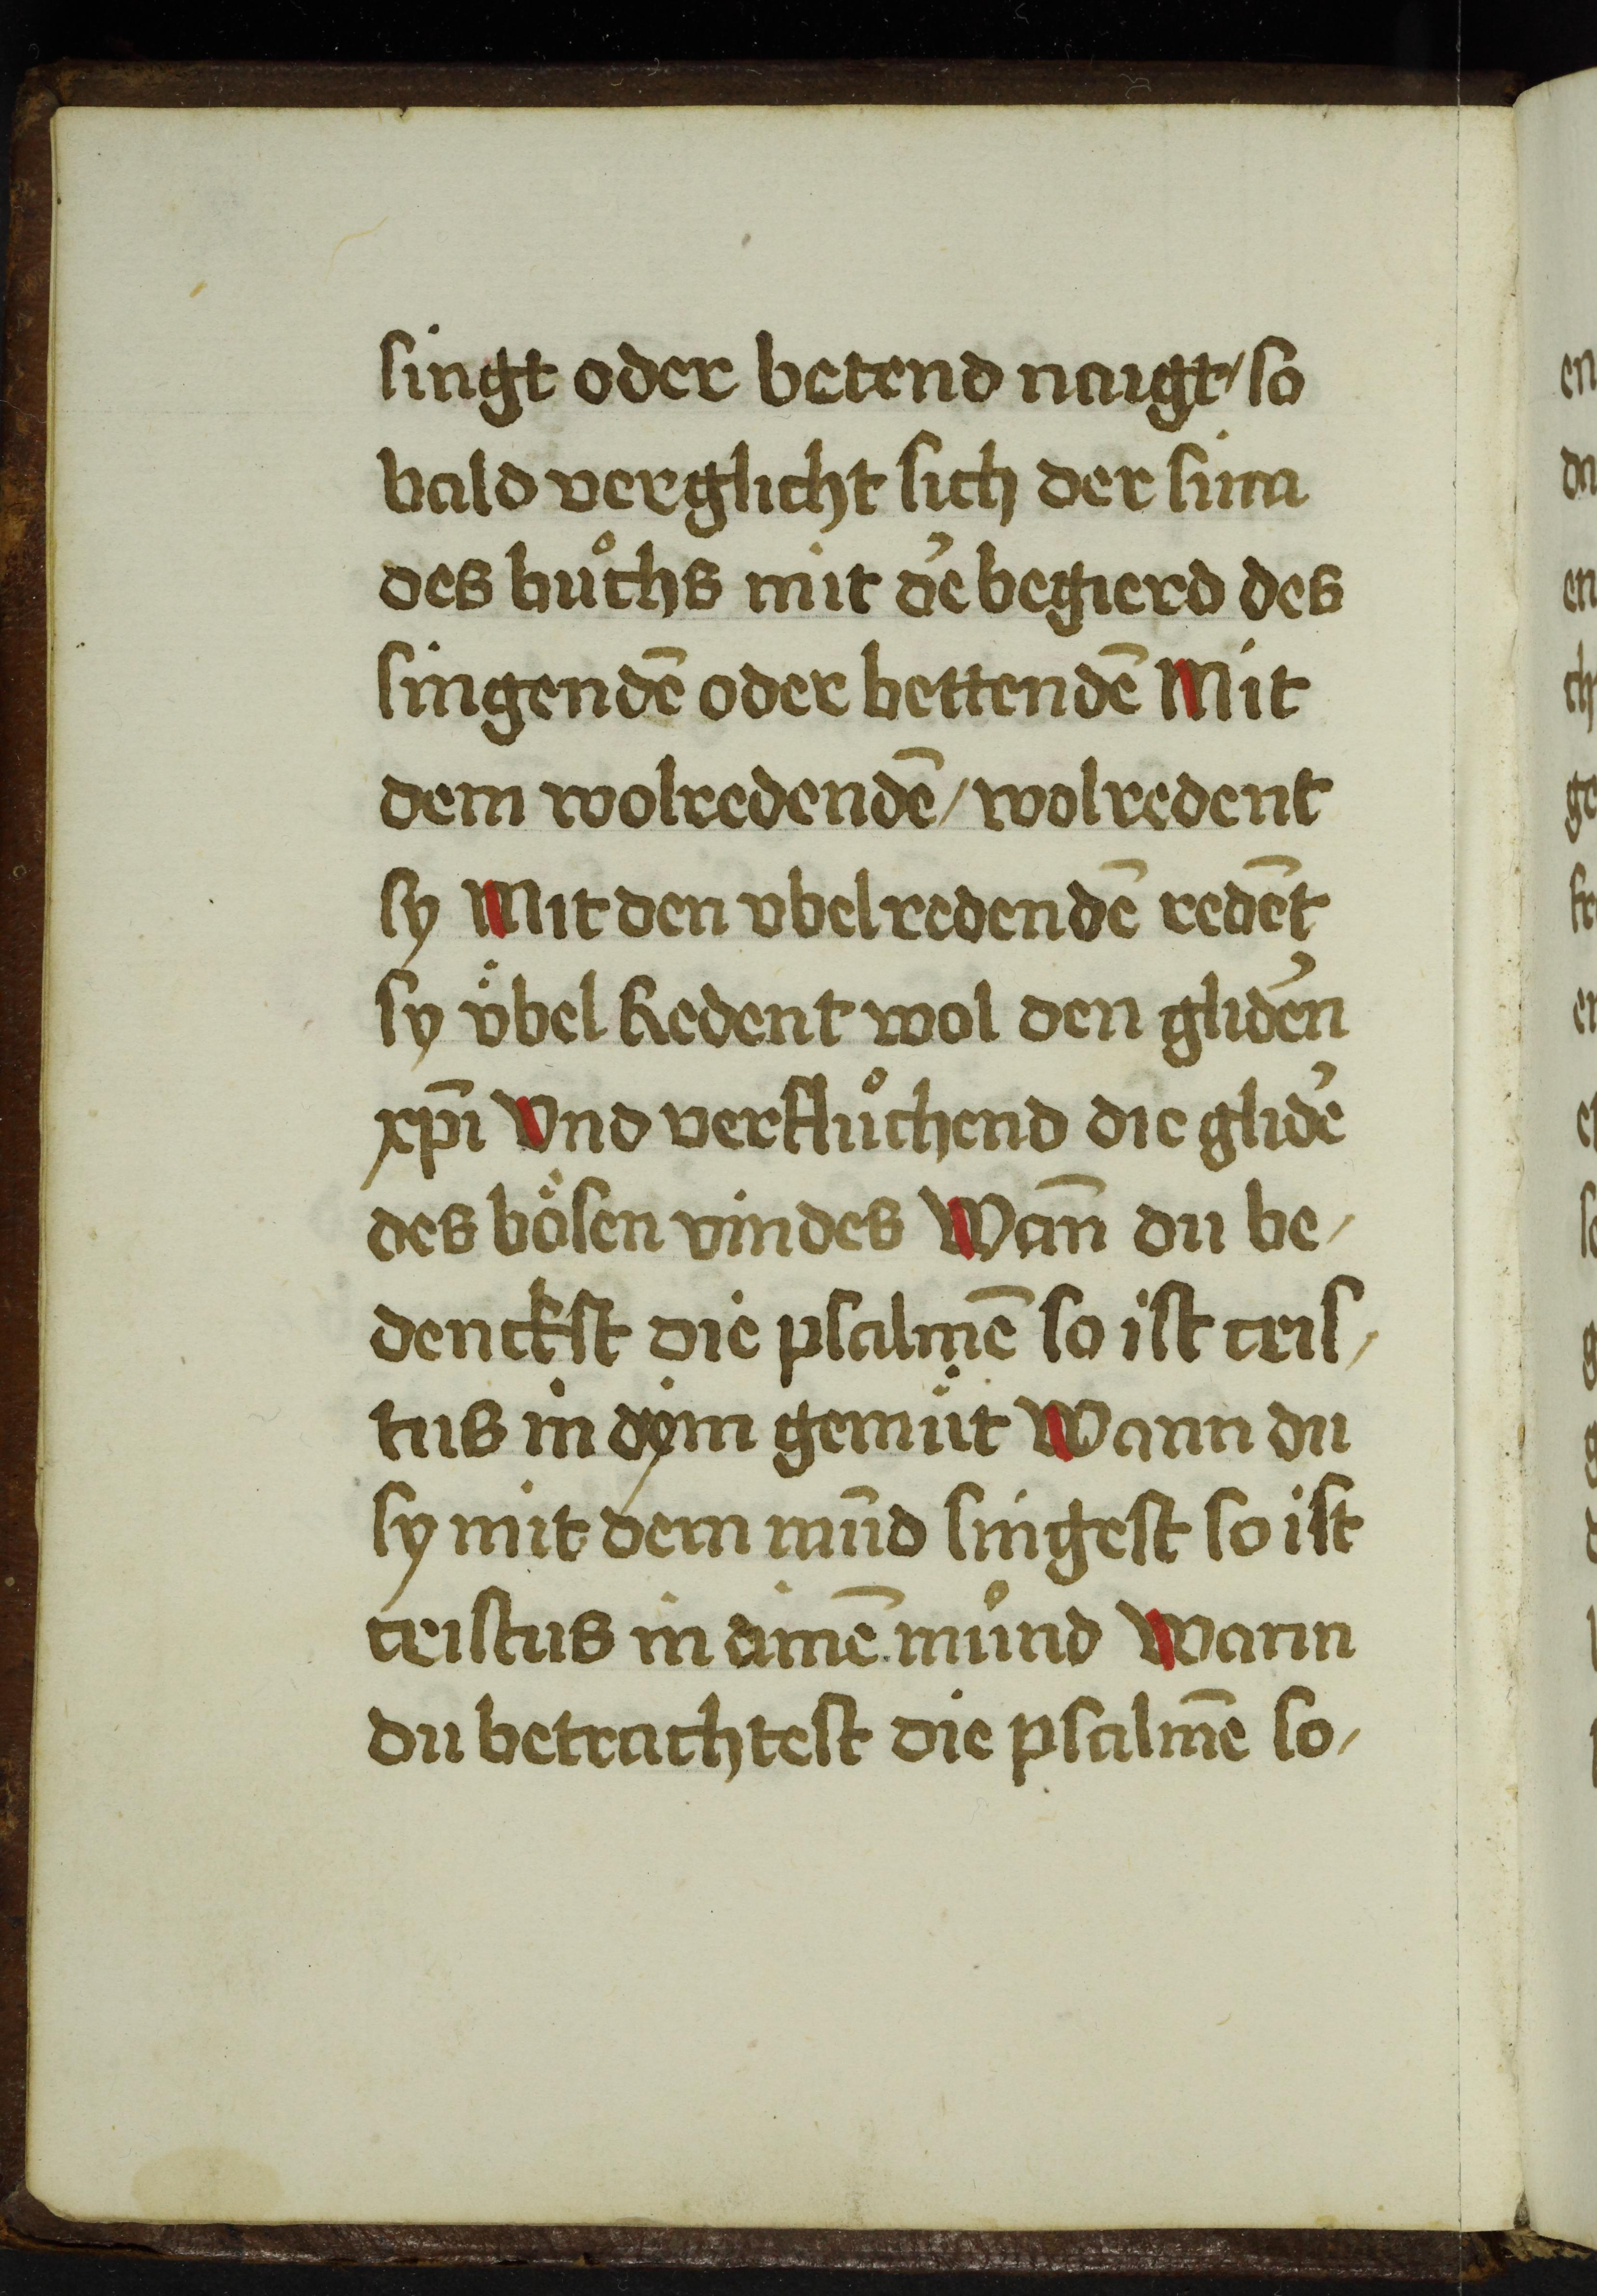 singt oder betend naigt / so
bald verglicht sich der sinn
des bůchs mit de᷑ begierd des
singendē oder bettendē Mit
dem wolredendē / wolredent
sy Mit den vbelredendē redēt
sy v̈bel Redent wol den glide᷑n
xp̄i Vnd verflůchend die glide᷑
des bösen vindes Wan̄ du be /
denckst die psalmē so ist cris /
tus in dym gemüt Wann du
sy mit dem mūd singest so ist
cristus in dinē můnd Wann
du betrachtest die psalm̄e so /